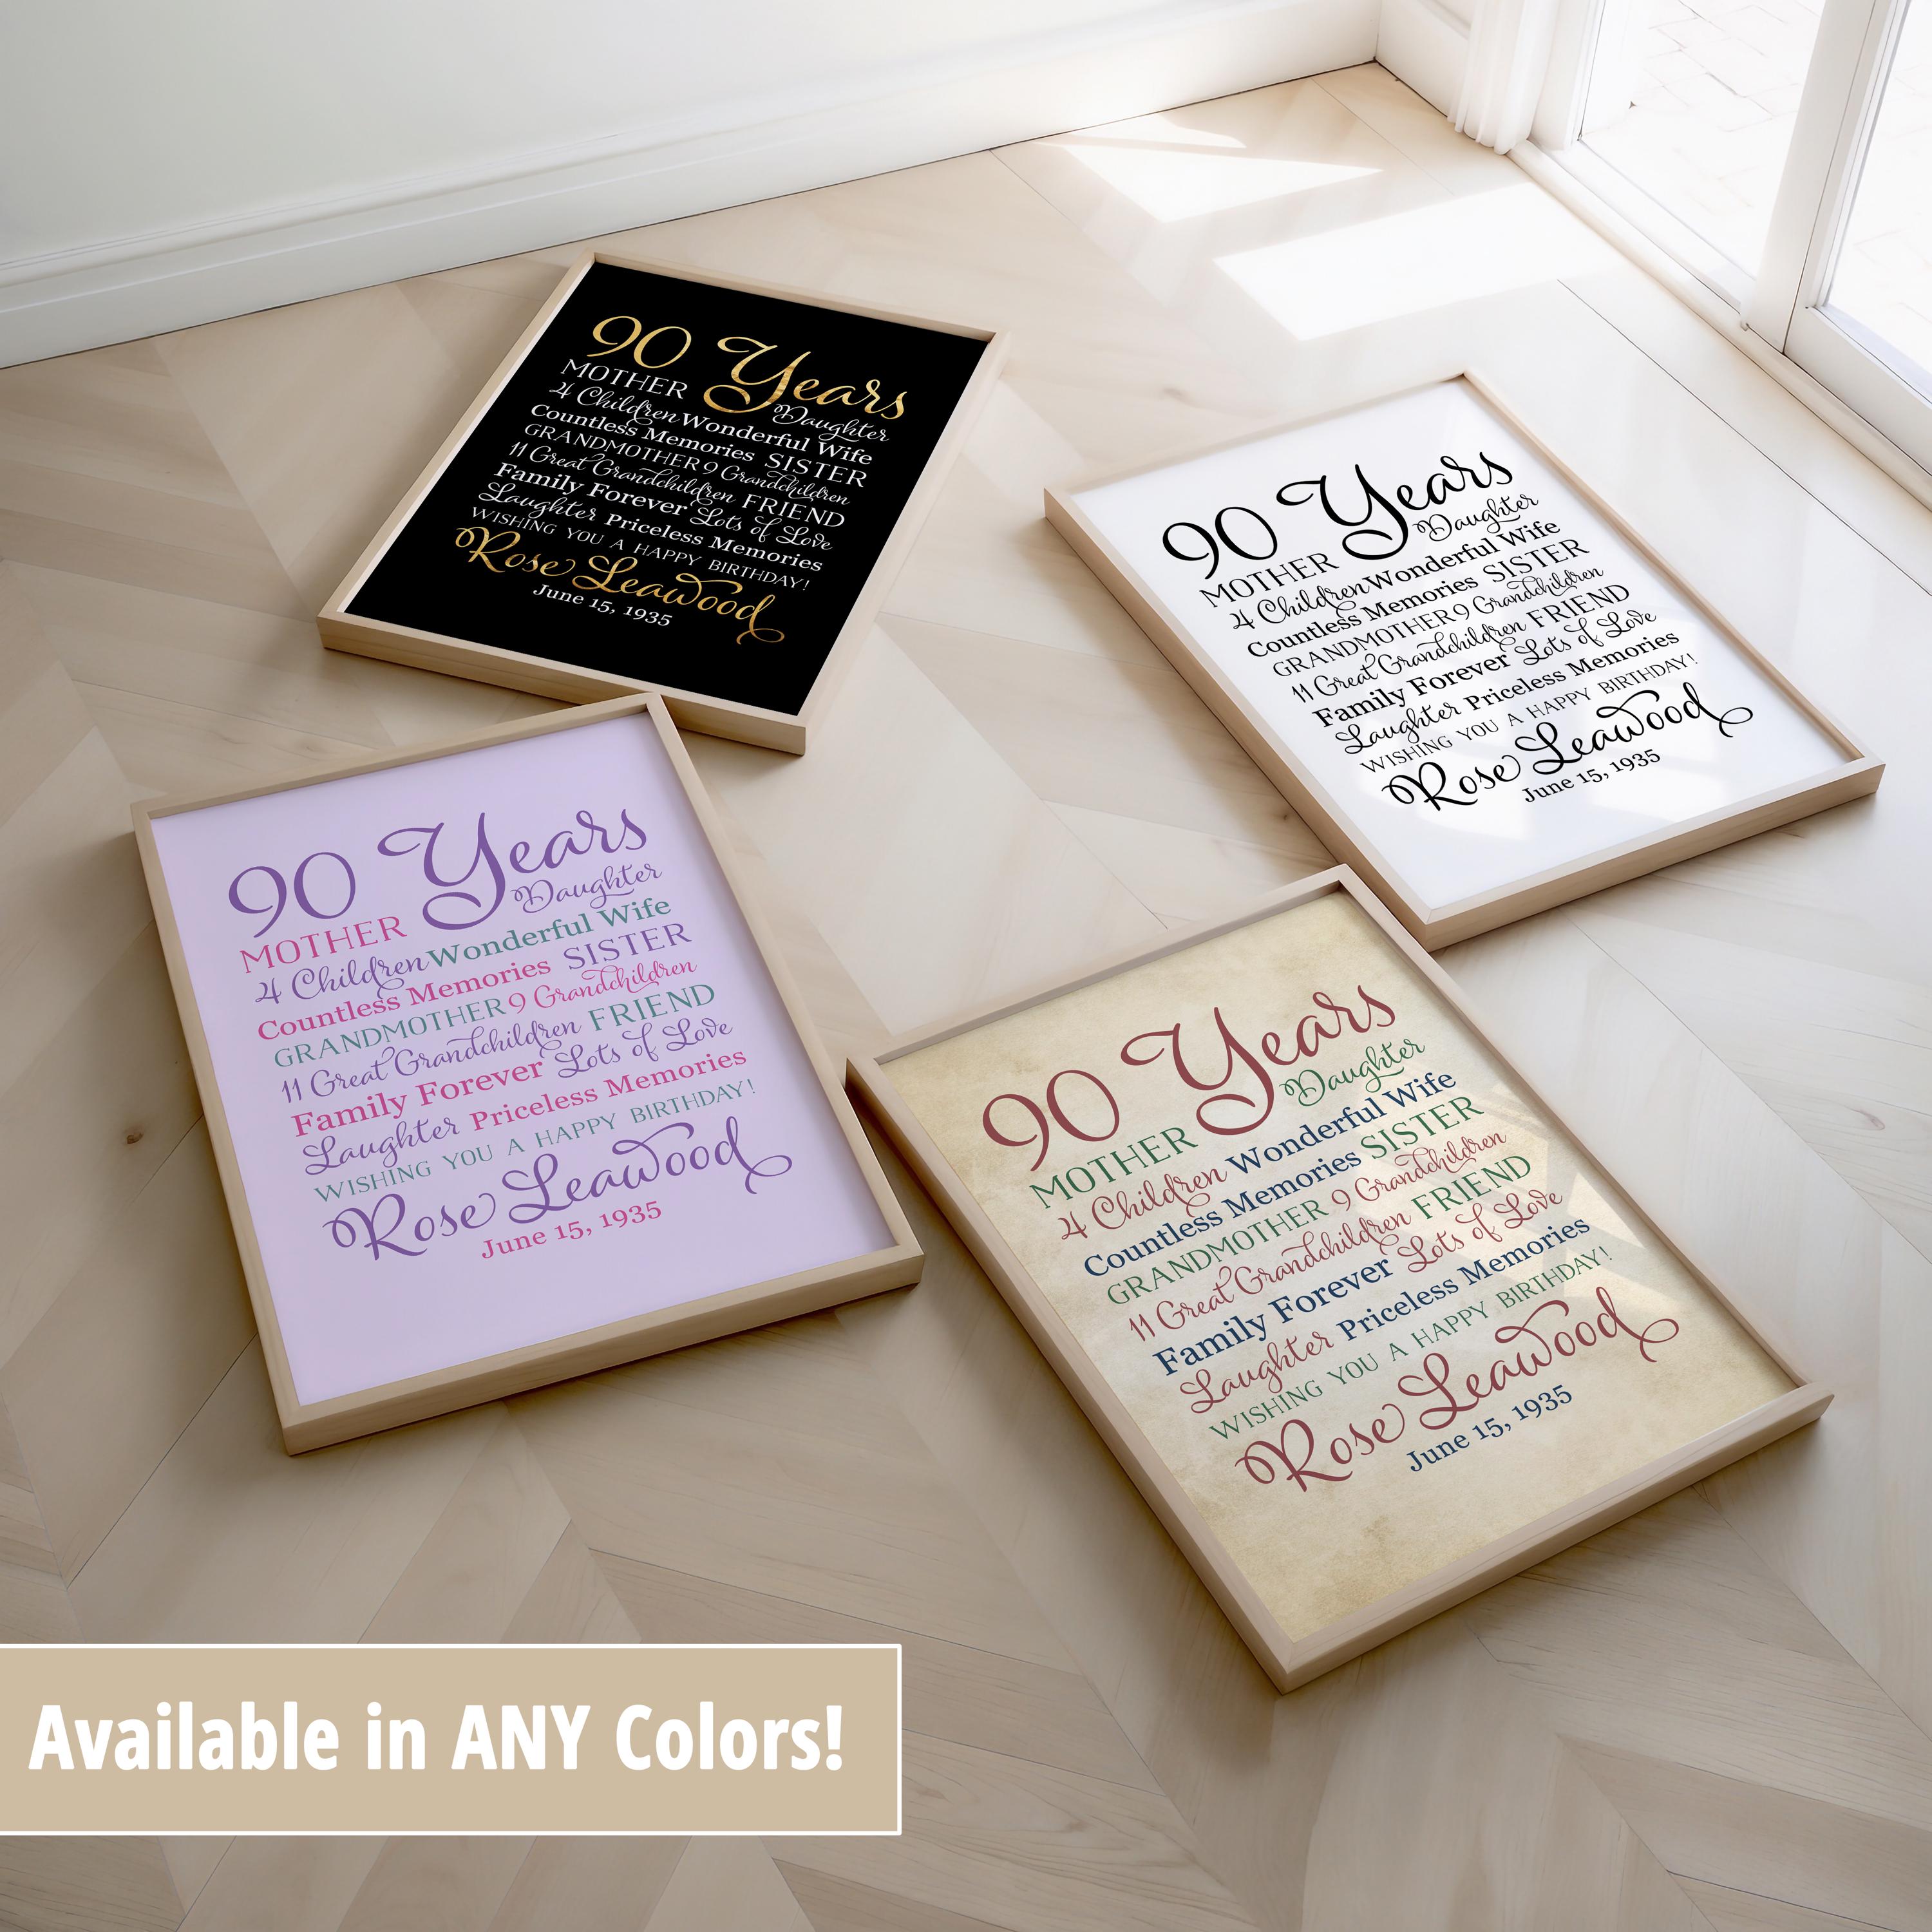 90 Years
MOTHER Daughter
4 Children Wonderful Wife
Countless Memories SISTER
GRANDMOTHER 9 Grandchildren
11 Great Grandchildren FRIEND
Family Forever Lots of Love
Laughter Priceless Memories
WISHING YOU A HAPPY BIRTHDAY!
Rose Leawood
June 15, 1935
90 Years
MOTHER Daughter
4 Children Wonderful Wife
Countless Memories SISTER
GRANDMOTHER 9 Grandchildren
11 Great Grandchildren FRIEND
Family Forever Lots of Love
Laughter Priceless Memories
WISHING YOU A HAPPY BIRTHDAY!
Rose Leawood
June 15, 1935
90 Years
MOTHER Daughter
4 Children Wonderful Wife
Countless Memories SISTER
GRANDMOTHER 9 Grandchildren
11 Great Grandchildren FRIEND
Family Forever Lots of Love
Laughter Priceless Memories
WISHING YOU A HAPPY BIRTHDAY!
Rose Leawood
June 15, 1935
90 Years
MOTHER Daughter
4 Children Wonderful Wife
Countless Memories SISTER
GRANDMOTHER 9 Grandchildren
11 Great Grandchildren FRIEND
Family Forever Lots of Love
Laughter Priceless Memories
WISHING YOU A HAPPY BIRTHDAY!
Rose Leawood
June 15, 1935
Available in ANY Colors!